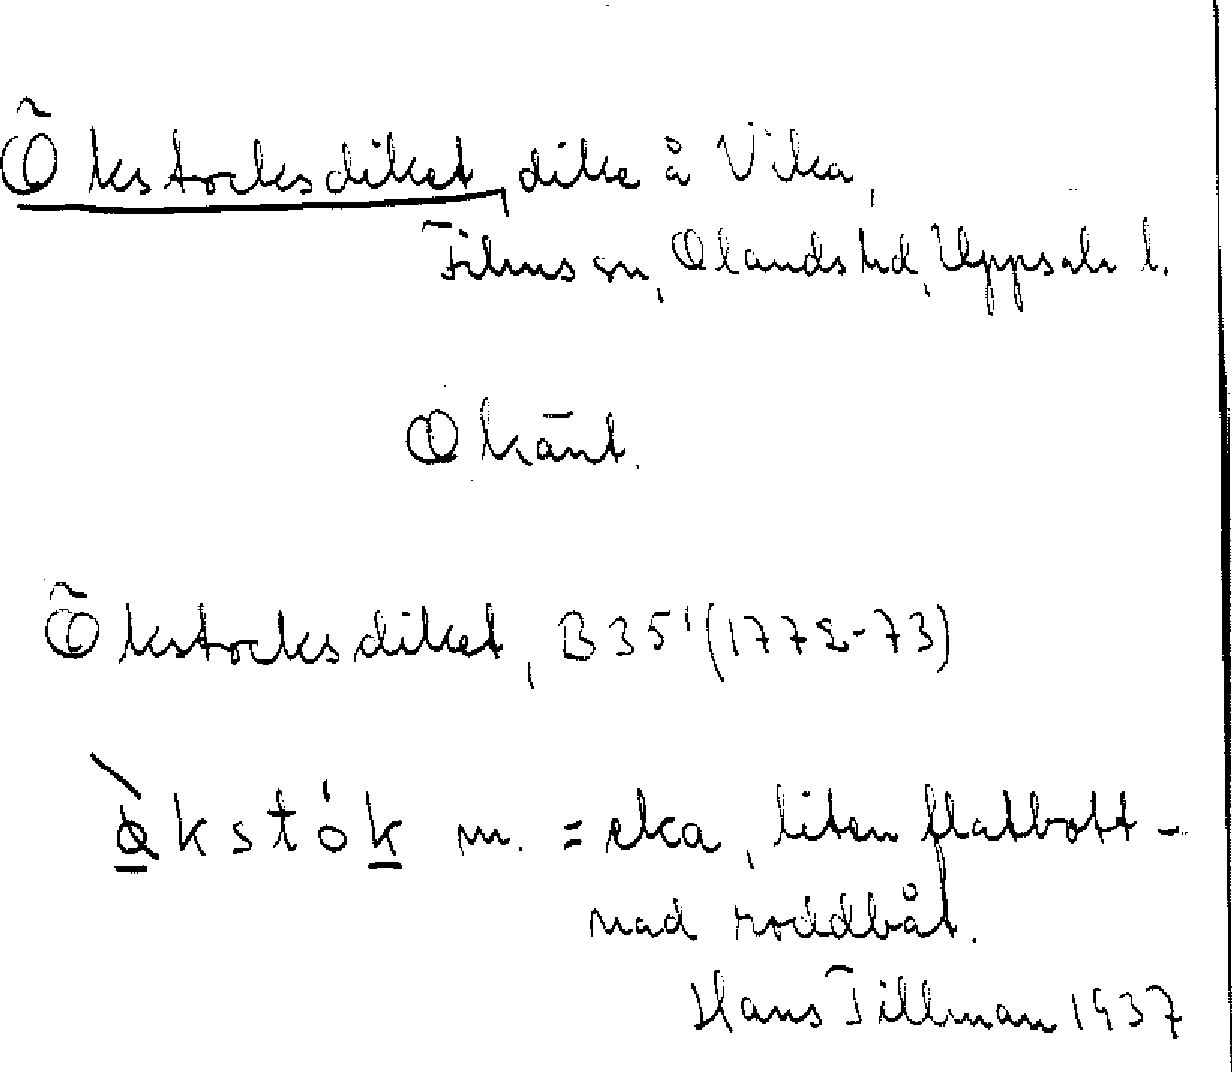 Õkstocksdiket, dike å Vika,
Films sn, Olands hd, Uppsala l.
Okänt.
Õkstocksdiket, B 35¹ (1772-73)
m. = eka, liten flatbott-
nad roddbåt.
Hans Tillman 1937